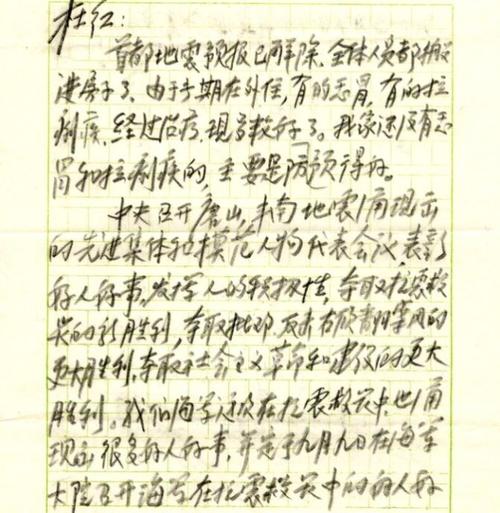 杜红：
首都地震预报已解除、全体人员都搬
进房子了、由于长期在外住，有的感冒，有的拉
痢疾，经过治疗，现多数好了。我家还没有感
冒和拉痢疾的，主要是预防得好。
中央召开唐山、丰南地震涌现出
的先进集体和模范人物代表会议，表彰
好人好事，发挥人的积极性，夺取抗震救
灾的新胜利，夺取批邓、反击右倾翻案风的
更大胜利，夺取社会主义革命和建设的更大
胜利。我们海军这次在抗震救灾中，也涌
现出很多好人好事，并定于九月九日在海军
大院召开海军在抗震救灾中的好人好